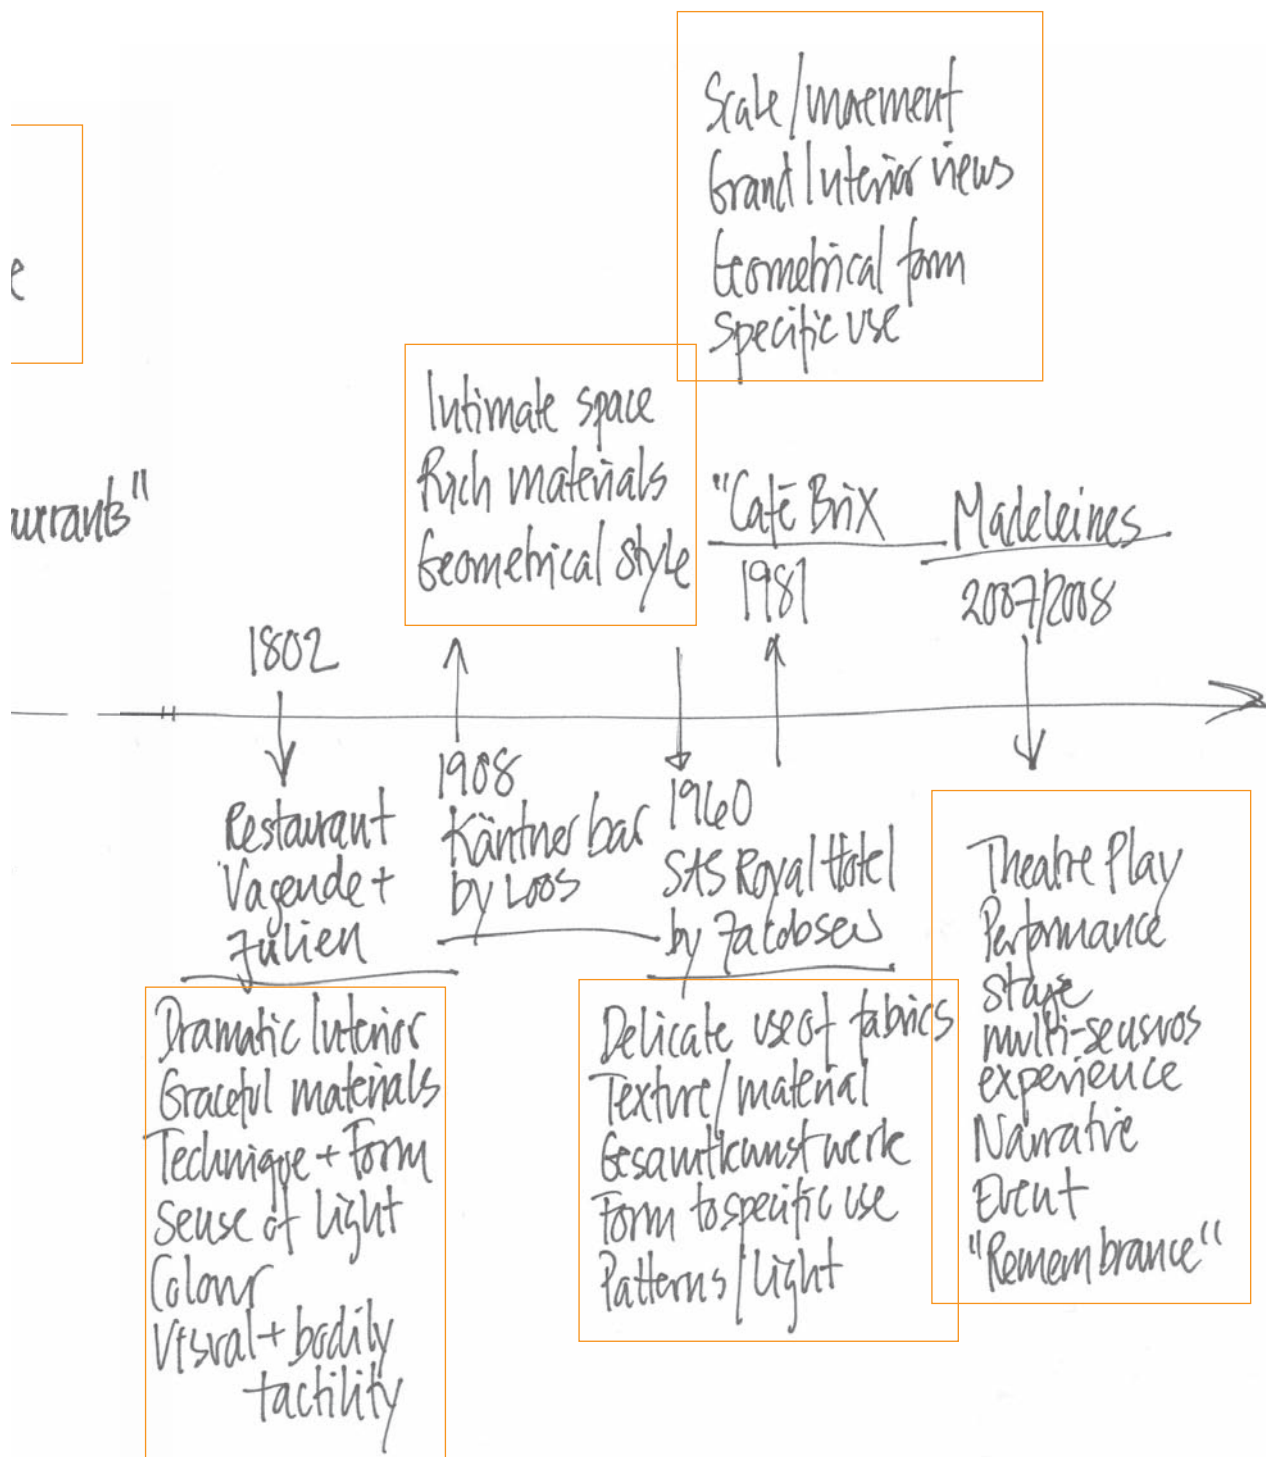 e
aurants"
Scale/movement
Grand Interior views
Geometrical form
Specific use
Intimate space
Rich materials
Geometrical style
"Café Brix
1981
Madeleines
2007/2008
1802
Restaurant
Vagende +
Julien
1908
Käntner bar
by Loos
1960
SAS Royal Hotel
by Jacobsen
Dramatic Interior
Graceful materials
Technique + Form
Sense of light
Colour
Visual + bodily
tactility
Delicate use of fabrics
Texture/material
Gesamtkunstwerk
Form to specific use
Patterns/light
Theatre Play
Performance
stage
multi-sensuos
experience
Narrative
Event
"Remembrance"